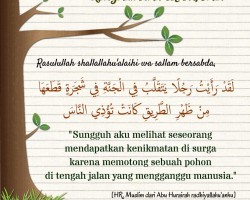 Rasulullah shallallahu'alaihi wa sallam bersabda,
لَقَدْ رَأَيْتُ رَجُلًا يَتَقَلَّبُ فِي الْجَنَّةِ فِي شَجَرَةٍ قَطَعَهَا
مِنْ ظَهْرِ الطَّرِيقِ كَانَتْ تُؤْذِي النَّاسَ
"Sungguh aku melihat seseorang
mendapatkan kenikmatan di surga
karena memotong sebuah pohon
di tengah jalan yang mengganggu manusia."
[HR. Muslim dari Abu Hurairah radhiyallahu'anhu]